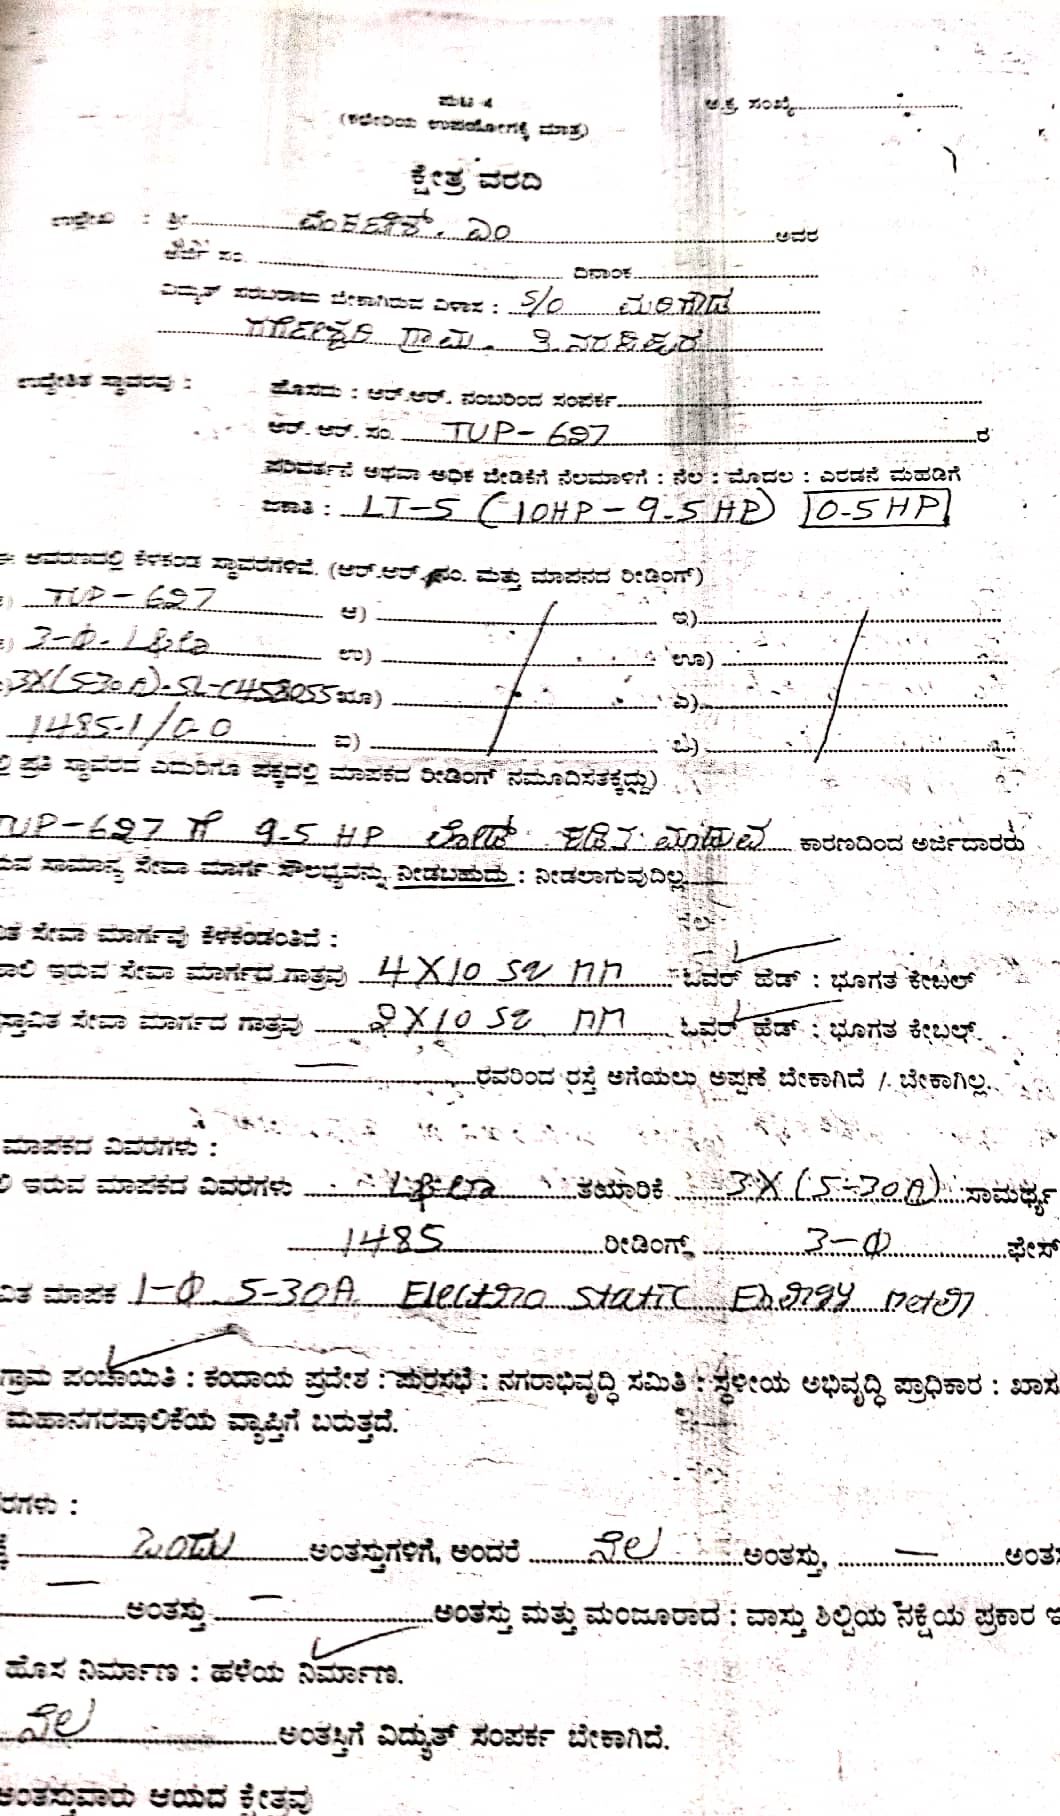 ಪುಟ 4
(ಕಛೇರಿಯ ಉಪಯೋಗಕ್ಕೆ ಮಾತ್ರ)
ಅ.ಕ್ರ. ಸಂಖ್ಯೆ
ಕ್ಷೇತ್ರ ವರದಿ
ಉಲ್ಲೇಖ : ಶ್ರೀ ವೆಂಕಟೇಶ್. ಎಂ ಅವರ
ಅರ್ಜಿ ಸಂ. ದಿನಾಂಕ
ವಿದ್ಯುತ್ ಸರಬರಾಜು ಬೇಕಾಗಿರುವ ವಿಳಾಸ : S/O ಮರಿಗೌಡ
ಗರ್ಗೇಶ್ವರಿ ಗ್ರಾಮ. ತಿ.ನರಸೀಪುರ
ಉದ್ದೇಶಿತ ಸ್ಥಾವರವು : ಹೊಸದು : ಆರ್.ಆರ್. ನಂಬರಿಂದ ಸಂಪರ್ಕ
ಆರ್. ಆರ್. ಸಂ. TUP-627 ರ
ಪರಿವರ್ತನೆ ಅಥವಾ ಅಧಿಕ ಬೇಡಿಕೆಗೆ ನೆಲಮಾಳಿಗೆ : ನೆಲ : ಮೊದಲ : ಎರಡನೆ ಮಹಡಿಗೆ
ಜಕಾತಿ : LT-5 (10HP-9.5HP) 0.5HP
ಈ ಆವರಣದಲ್ಲಿ ಕೆಳಕಂಡ ಸ್ಥಾವರಗಳಿವೆ. (ಆರ್.ಆರ್. ಸಂ. ಮತ್ತು ಮಾಪನದ ರೀಡಿಂಗ್)
TUP-627 ಆ) ಇ)
3-Φ. ಉ) ಊ)
3X(5-30A)-SL-C458055 ಋೂ) ಎ)
1485.1/0-0 ಐ) ಬ)
ಲ್ಲಿ ಪ್ರತಿ ಸ್ಥಾವರದ ಎದುರಿಗೂ ಪಕ್ಕದಲ್ಲಿ ಮಾಪಕದ ರೀಡಿಂಗ್ ನಮೂದಿಸತಕ್ಕದ್ದು)
TUP-627 ಗೆ 9.5 HP ಲೋಡ್ ಕಡಿತ ಮಾಡುವ ಕಾರಣದಿಂದ ಅರ್ಜಿದಾರರು
ರುವ ಸಾಮಾನ್ಯ ಸೇವಾ ಮಾರ್ಗ ಸೌಲಭ್ಯವನ್ನು ನೀಡಬಹುದು : ನೀಡಲಾಗುವುದಿಲ್ಲ
ನೆಲ
ಿತ ಸೇವಾ ಮಾರ್ಗವು ಕೆಳಕಂಡಂತಿದೆ :
ಾಲಿ ಇರುವ ಸೇವಾ ಮಾರ್ಗದ ಗಾತ್ರವು 4X10 SQ mm ಓವರ್ ಹೆಡ್ : ಭೂಗತ ಕೇಬಲ್
ಸ್ತಾವಿತ ಸೇವಾ ಮಾರ್ಗದ ಗಾತ್ರವು 2X10 SQ mm ಓವರ್ ಹೆಡ್ : ಭೂಗತ ಕೇಬಲ್.
ರವರಿಂದ ರಸ್ತೆ ಅಗೆಯಲು ಅಪ್ಪಣೆ ಬೇಕಾಗಿದೆ / ಬೇಕಾಗಿಲ್ಲ.
ಮಾಪಕದ ವಿವರಗಳು :
ಲಿ ಇರುವ ಮಾಪಕದ ವಿವರಗಳು ತಯಾರಿಕೆ 3X(5-30A) ಸಾಮರ್ಥ್ಯ
1485 ರೀಡಿಂಗ್ 3-Φ ಫೇಸ್
ವಿತ ಮಾಪಕ 1-Φ 5-30A Electro Static Energy meter
ಗ್ರಾಮ ಪಂಚಾಯಿತಿ : ಕಂದಾಯ ಪ್ರದೇಶ : ಪುರಸಭೆ : ನಗರಾಭಿವೃದ್ಧಿ ಸಮಿತಿ : ಸ್ಥಳೀಯ ಅಭಿವೃದ್ಧಿ ಪ್ರಾಧಿಕಾರ : ಖಾಸ
ಮಹಾನಗರಪಾಲಿಕೆಯ ವ್ಯಾಪ್ತಿಗೆ ಬರುತ್ತದೆ.
ನೆಲ
ರಗಳು :
ಕ್ಕೆ ಒಂದು ಅಂತಸ್ತುಗಳಿಗೆ, ಅಂದರೆ ನೆಲ ಅಂತಸ್ತು, — ಅಂತಸ
— ಅಂತಸ್ತು — ಅಂತಸ್ತು ಮತ್ತು ಮಂಜೂರಾದ : ವಾಸ್ತು ಶಿಲ್ಪಿಯ ನಕ್ಷೆಯ ಪ್ರಕಾರ ಇ
ಹೊಸ ನಿರ್ಮಾಣ : ಹಳೆಯ ನಿರ್ಮಾಣ.
ನೆಲ ಅಂತಸ್ತಿಗೆ ವಿದ್ಯುತ್ ಸಂಪರ್ಕ ಬೇಕಾಗಿದೆ.
ಅಂತಸ್ತುವಾರು ಆಯದ ಕ್ಷೇತ್ರವು